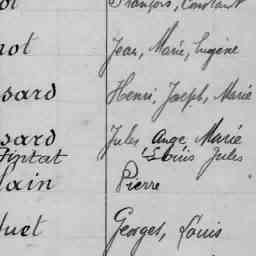 ot François, Constant
not Jean, Marie, Eugène
sard Henri, Joseph, Marie
sard Jules Ange, Marie
Louis Jules
lain Pierre
quet Georges, Louis